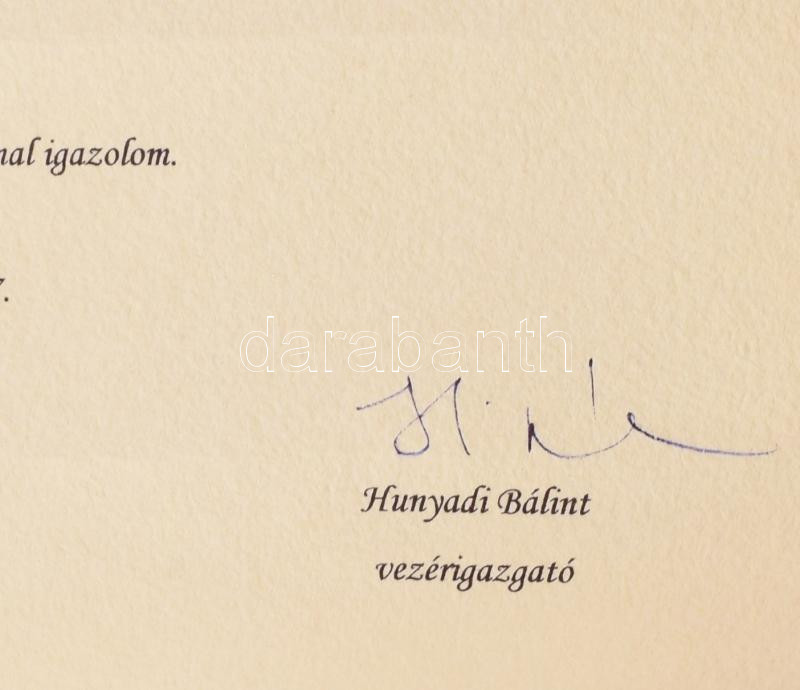 igazolom.
darabanth
Hunyadi Bálint
vezérigazgató